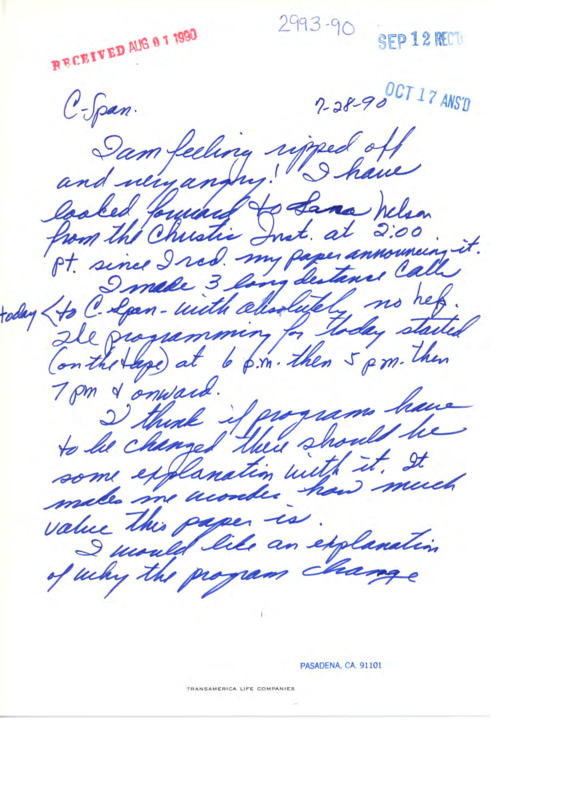 2993-90
RECEIVED AUG 01 1990
SEP 12 REC'D
OCT 17 ANS'D
C-Span.
7-28-90
I am feeling ripped off
and very angry! I have
looked forward to Sara Nelson
from the Christic Inst. at 2:00
pt. since I rcd. my paper announcing it.
I made 3 long distance calls
today < to C-Span - with absolutely no help.
The programming for today started
(on the tape) at 6 p.m. then 5 p.m. then
7 pm & onward.
I think if programs have
to be changed there should be
some explanation with it. It
makes me wonder how much
value this paper is.
I would like an explanation
of why the program change
PASADENA, CA. 91101
TRANSAMERICA LIFE COMPANIES